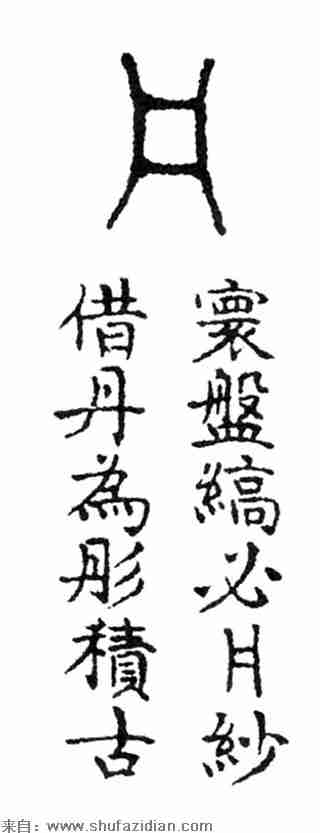 寰盤縞必丹紗
借丹為彤積古
来自：www.shufazidian.com